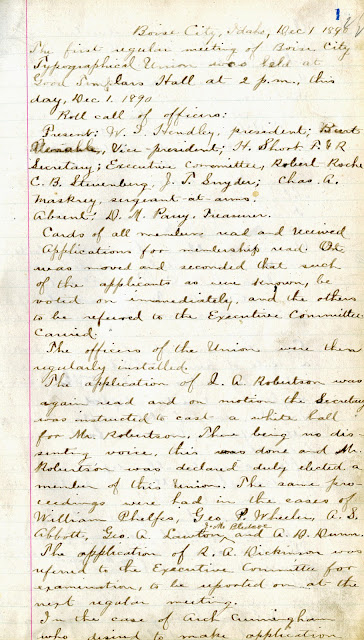 1
Boise City, Idaho, Dec 1 1890
The first regular meeting of Boise City
Typographical Union was held at
Good Templars Hall at 2 p.m., this
day, Dec. 1. 1890
Roll call of officers:
Present: W. J. Hendley, president; Burt
Venable, Vice-president; H. Short F. & R
Secretary; Executive Committee, Robert Roche
C. B. Steunenberg, J. T. Snyder; Chas. A.
Maskrey, sergeant-at-arms.
Absent: D. M. Treasurer.
Cards of all members read and received
Applications for membership read. It
was moved and seconded that such
of the applicants as were known, be
voted on immediately, and the others
to be referred to the Executive Committee
Carried.
The officers of the Union were then
regularly installed.
The application of I. A. Robertson was
again read and on motion the Secretary
was instructed to cast a white ball
for Mr. Robertson. There being no dis
senting voice, this was done and Mr.
Robertson was declared duly elected a
member of this Union. The same pro-
ceedings were had in the cases of
William Phelps, Geo. P. Wheeler, A. S.
Abbott, Geo. A. Lawton, and A. D. Dunn.
The application of R. A. Dickinson was
referred to the Executive Committee for
examination, to be reported on at the
next regular meeting.
In the case of Arch Cunningham
who desired to make application